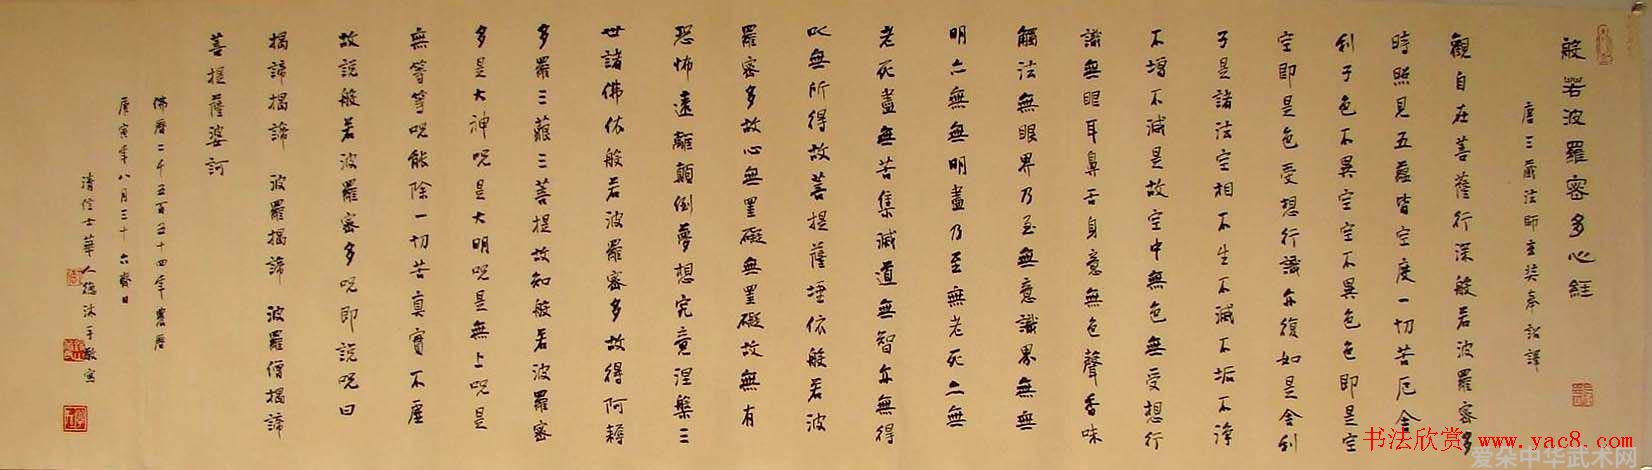 般若波羅密多心経
唐三藏法師玄奘奉詔譯
觀自在菩薩行深般若波羅密多
時照見五蘊皆空度一切苦厄舍
利子色不異空空不異色色即是空
空即是色受想行識亦復如是舍利
子是諸法空相不生不滅不垢不淨
不增不減是故空中無色無受想行
識無眼耳鼻舌身意無色聲香味
觸法無眼界乃至無意識界無無
明亦無無明盡乃至無老死亦無
老死盡無苦集滅道無智亦無得
以無所得故菩提薩埵依般若波
羅密多故心無罣礙無罣礙故無有
恐怖遠離顛倒夢想究竟涅槃三
世諸佛依般若波羅密多故得阿耨
多羅三藐三菩提故知般若波羅密
多是大神呪是大明呪是無上呪是
無等等呪能除一切苦真實不虛
故說般若波羅密多呪即說呪曰
揭諦揭諦 波羅揭諦 波羅僧揭諦
菩提薩婆訶
佛曆二千五百五十四年農曆
庚寅年八月三十六齋日
清信士華人德沐手敬寫
书法欣赏 www.yac8.com
爱朵中华武术网